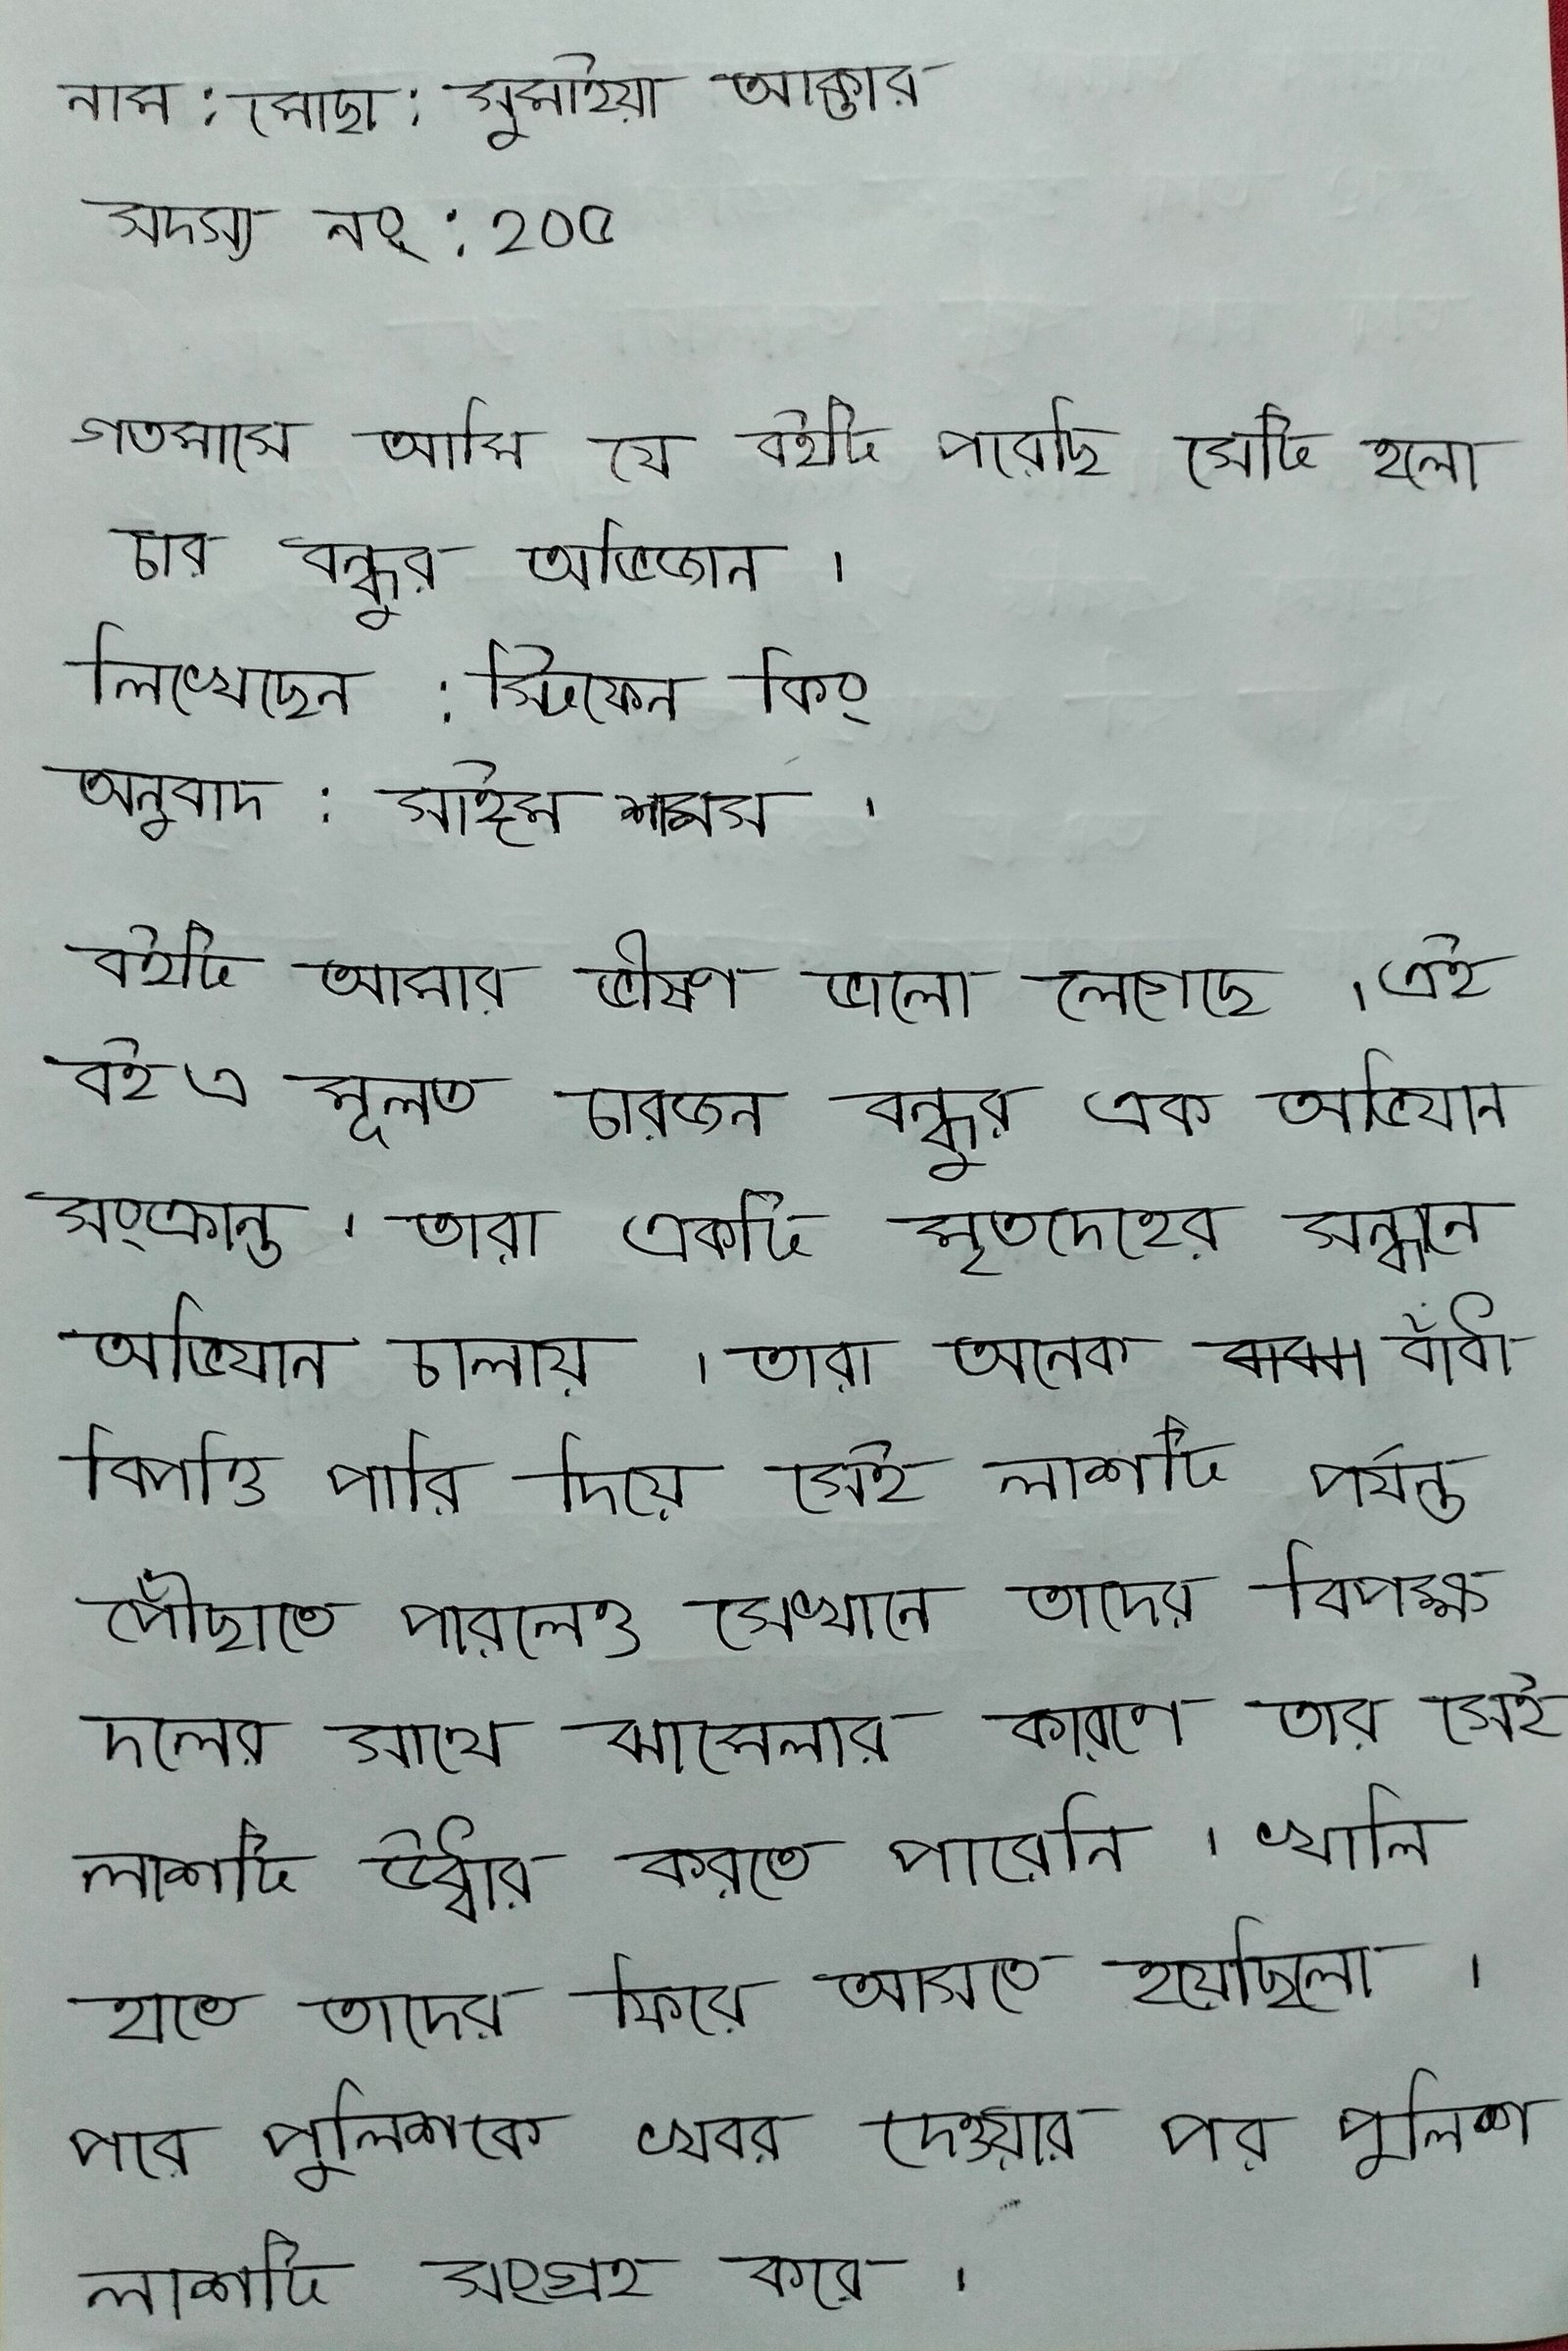 নাম : মোছা : সুমাইয়া আক্তার
সদস্য নং : ২০৫
গতমাসে আমি যে বইটি পরেছি সেটি হলো
চার বন্ধুর অভিজান ।
লিখেছেন : স্টিফেন কিং
অনুবাদ : সাইম শামস ।
বইটি আমার ভীষণ ভালো লেগেছে । এই
বই এ মূলত চারজন বন্ধুর এক অভিযান
সংক্রান্ত । তারা একটি মৃতদেহের সন্ধানে
অভিযান চালায় । তারা অনেক বাঁধা
বিপত্তি পারি দিয়ে সেই লাশটি পর্যন্ত
পৌঁছাতে পারলেও সেখানে তাদের বিপক্ষ
দলের সাথে ঝামেলার কারণে তার সেই
লাশটি উদ্ধার করতে পারেনি । খালি
হাতে তাদের ফিরে আসতে হয়েছিলো ।
পরে পুলিশকে খবর দেওয়ার পর পুলিশ
লাশটি সংগ্রহ করে ।